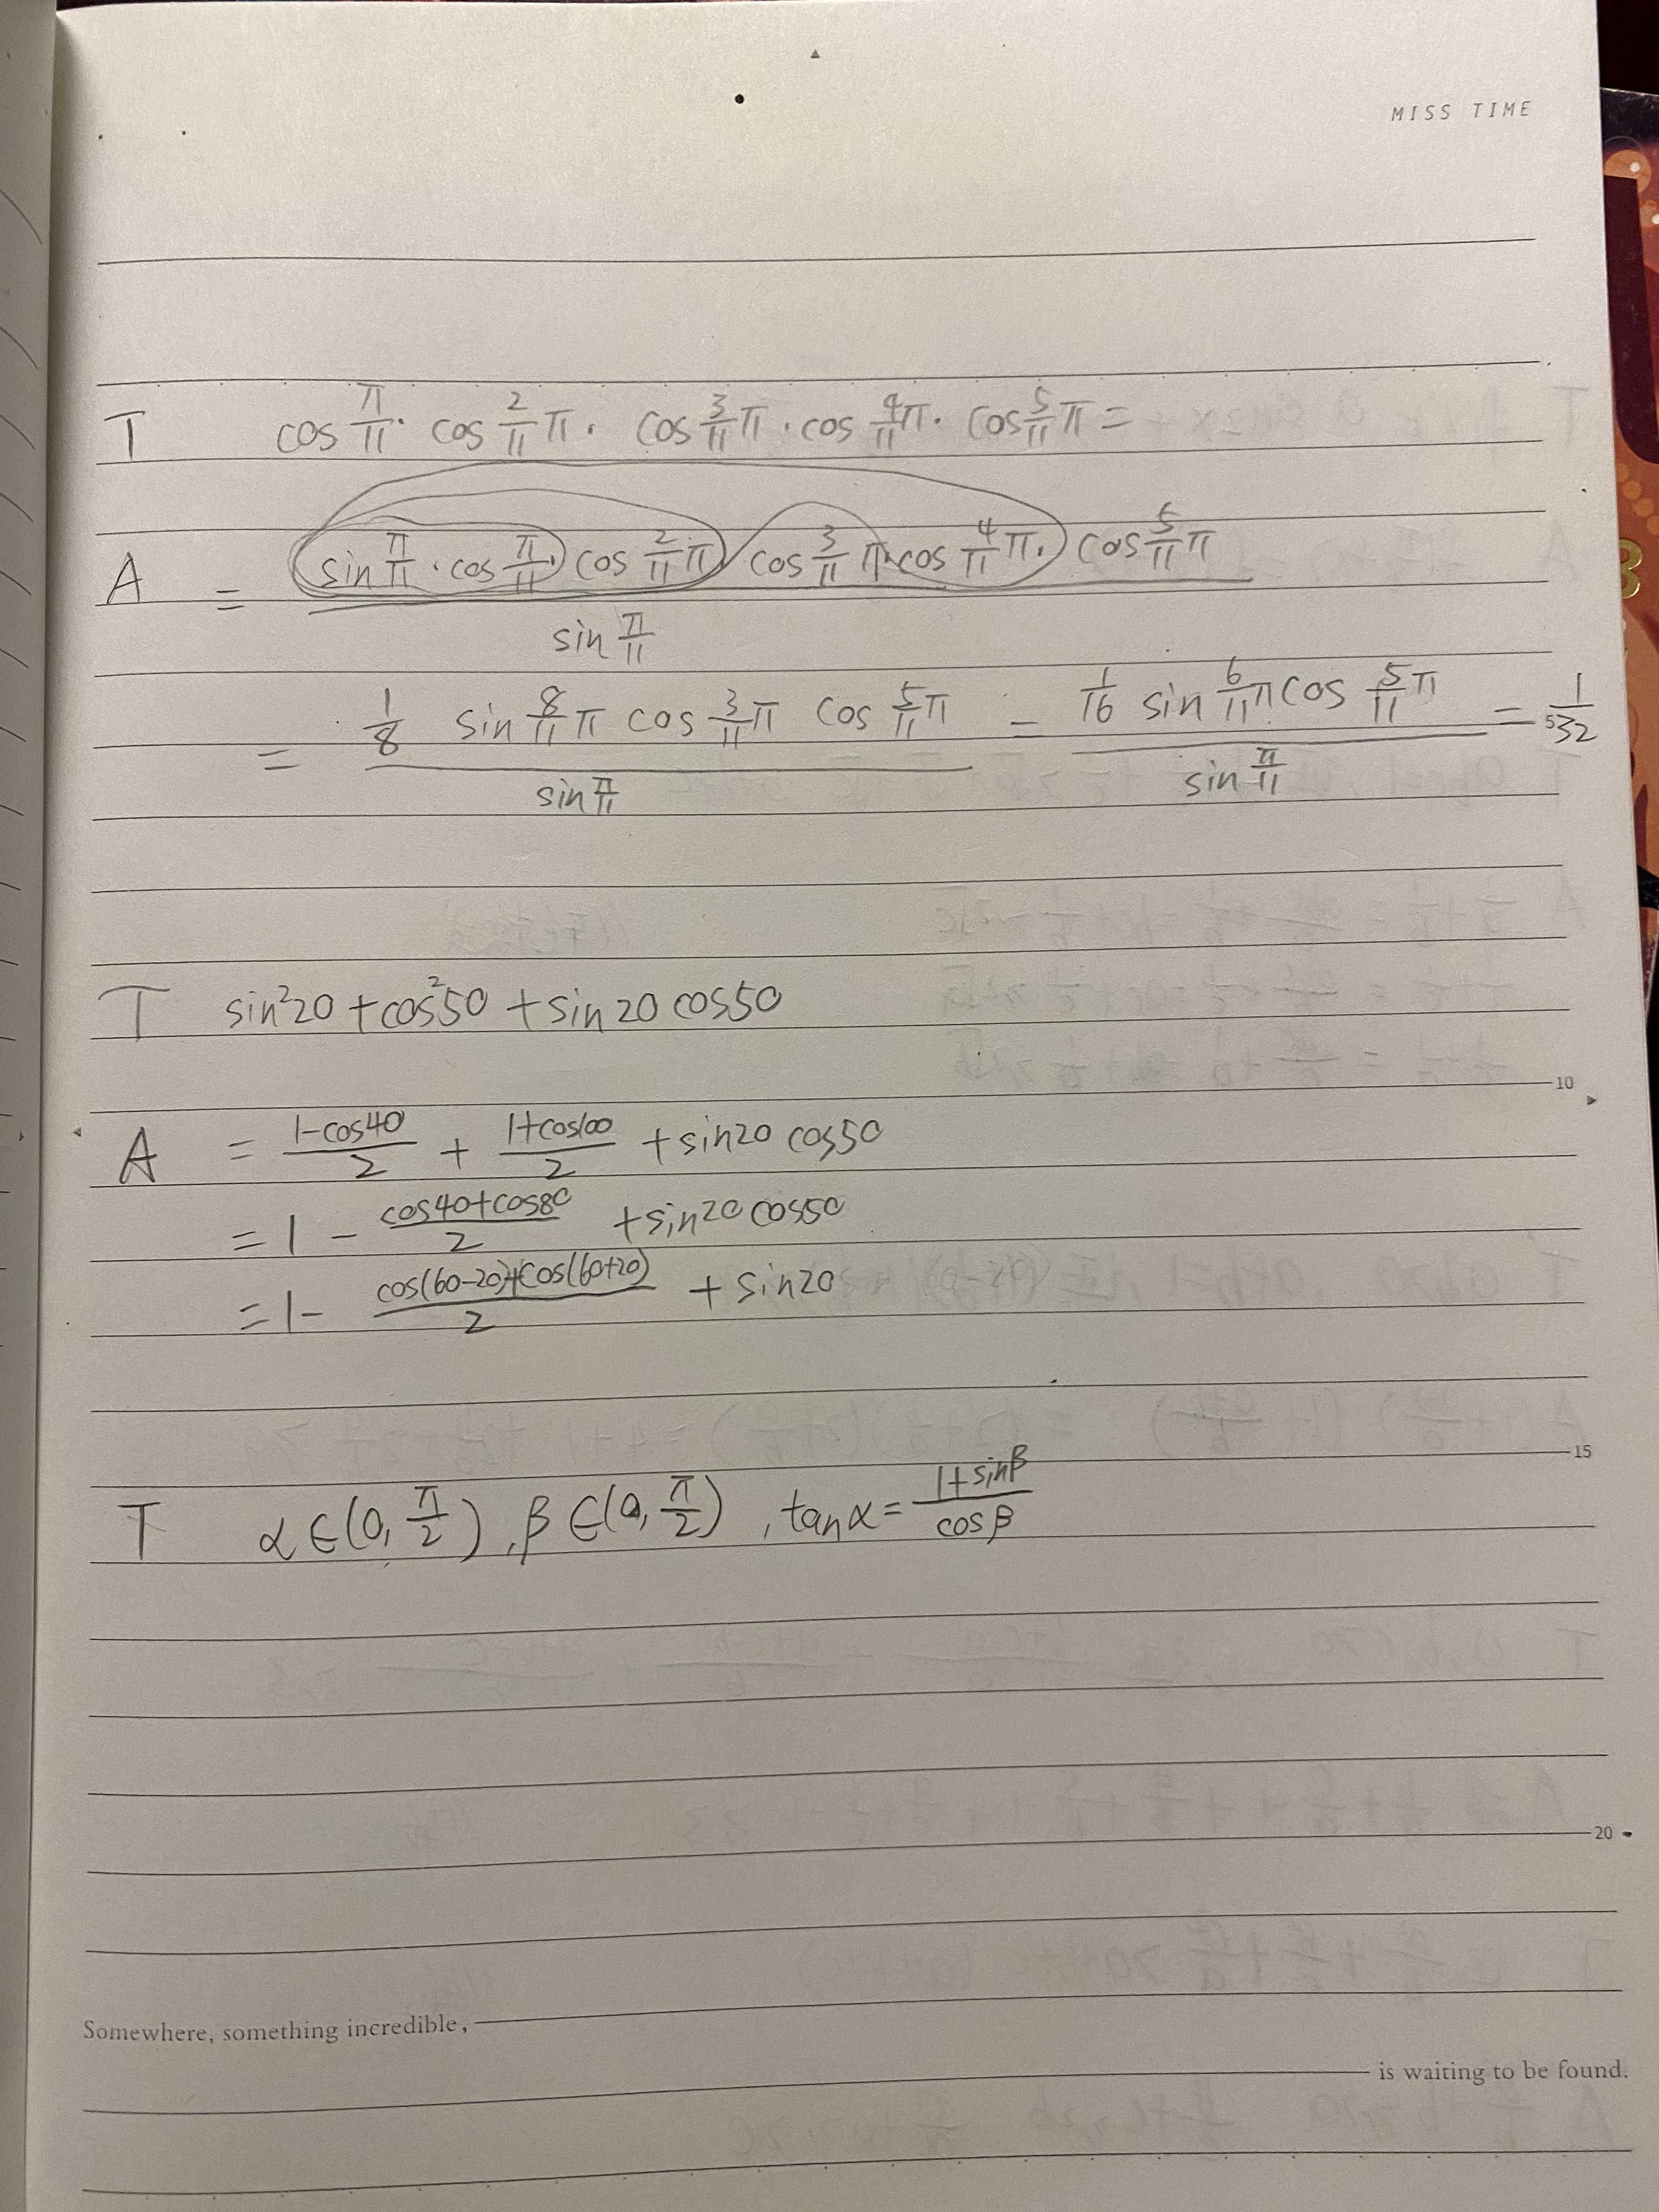 MISS TIME
T cos π/11 · cos 2/11 π · cos 3/11 π · cos 4/11 π · cos 5/11 π =
A = sin π/11 · cos π/11 · cos 2/11 π · cos 3/11 π · cos 4/11 π · cos 5/11 π / sin π/11
= 1/8 sin 8/11 π cos 3/11 π cos 5/11 π / sin π/11 = 1/16 sin 6/11 π cos 5/11 π / sin π/11 = 1/32
5
T sin²20 + cos²50 + sin 20 cos 50
10
A = 1-cos40/2 + 1+cos100/2 + sin20 cos50
= 1 - cos40+cos80/2 + sin20 cos50
= 1 - cos(60-20)+cos(60+20)/2 + sin20
15
T α∈(0, π/2), β∈(0, π/2), tanα = 1+sinβ/cosβ
20
Somewhere, something incredible, is waiting to be found.